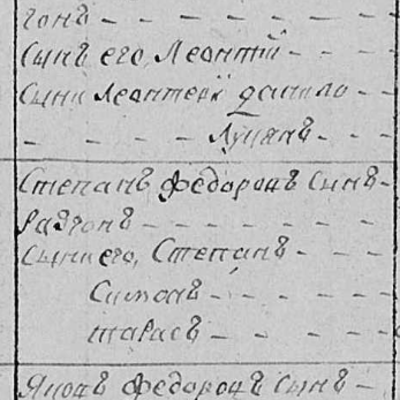 гонъ - - - - - - -
Сынъ его, Леонтій - - - -
Сыни Леонтеви данило - -
- - - - Луцянъ - - -
Степанъ федоровъ Сынъ -
Разгонъ - - - - - - -
Сыни его, Степанъ - - -
Симонъ - - - - -
тарасъ - - - - -
Яковъ федоровъ Сынъ -